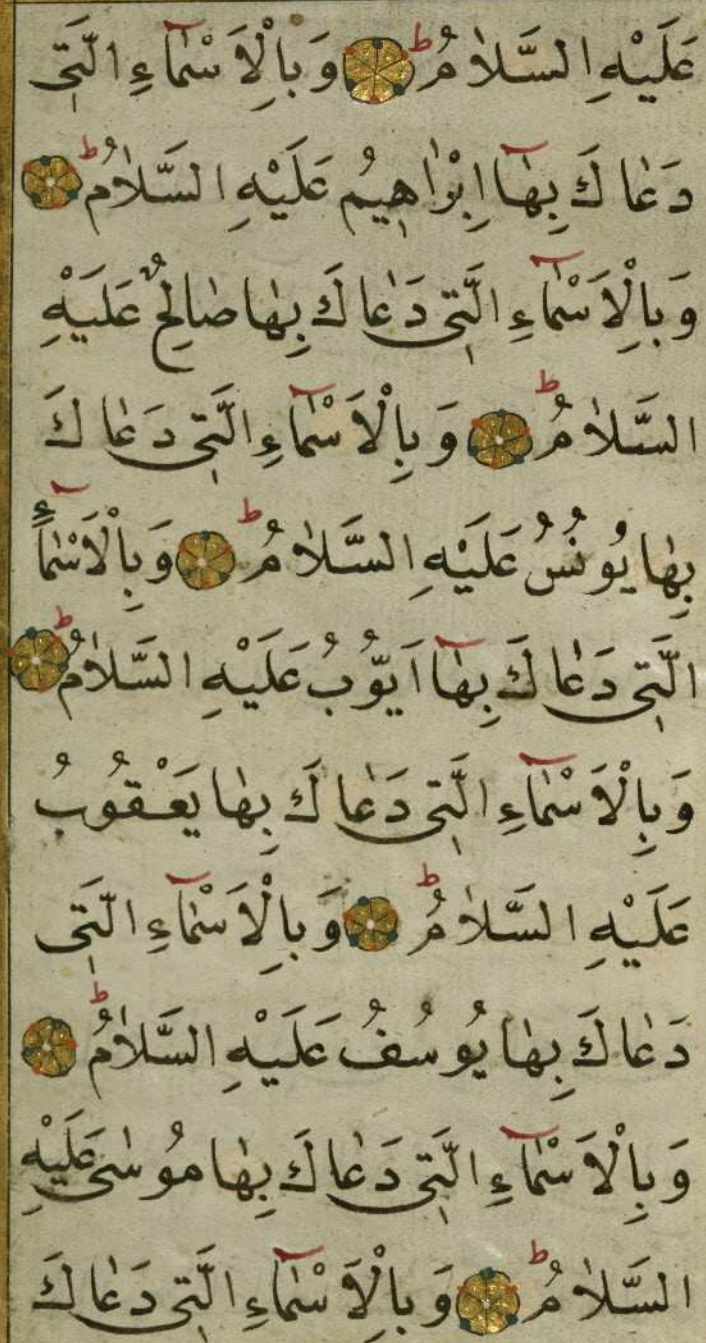 عَلَيْهِ السَّلَامُ ط وَبِالْاَسْمَآءِ الَّتِى
دَعَاكَ بِهَآ اِبْرٰاهِيمُ عَلَيْهِ السَّلَامُ ط
وَبِالْاَسْمَآءِ الَّتِى دَعَاكَ بِهَا صَالِحٌ عَلَيْهِ
السَّلَامُ ط وَبِالْاَسْمَآءِ الَّتِى دَعَاكَ
بِهَا يُونُسُ عَلَيْهِ السَّلَامُ ط وَبِالْاَسْمَآءِ
الَّتِى دَعَاكَ بِهَآ اَيُّوبُ عَلَيْهِ السَّلَامُ ط
وَبِالْاَسْمَآءِ الَّتِى دَعَاكَ بِهَا يَعْقُوبُ
عَلَيْهِ السَّلَامُ ط وَبِالْاَسْمَآءِ الَّتِى
دَعَاكَ بِهَا يُوسُفُ عَلَيْهِ السَّلَامُ ط
وَبِالْاَسْمَآءِ الَّتِى دَعَاكَ بِهَا مُوسٰى عَلَيْهِ
السَّلَامُ ط وَبِالْاَسْمَآءِ الَّتِى دَعَاكَ